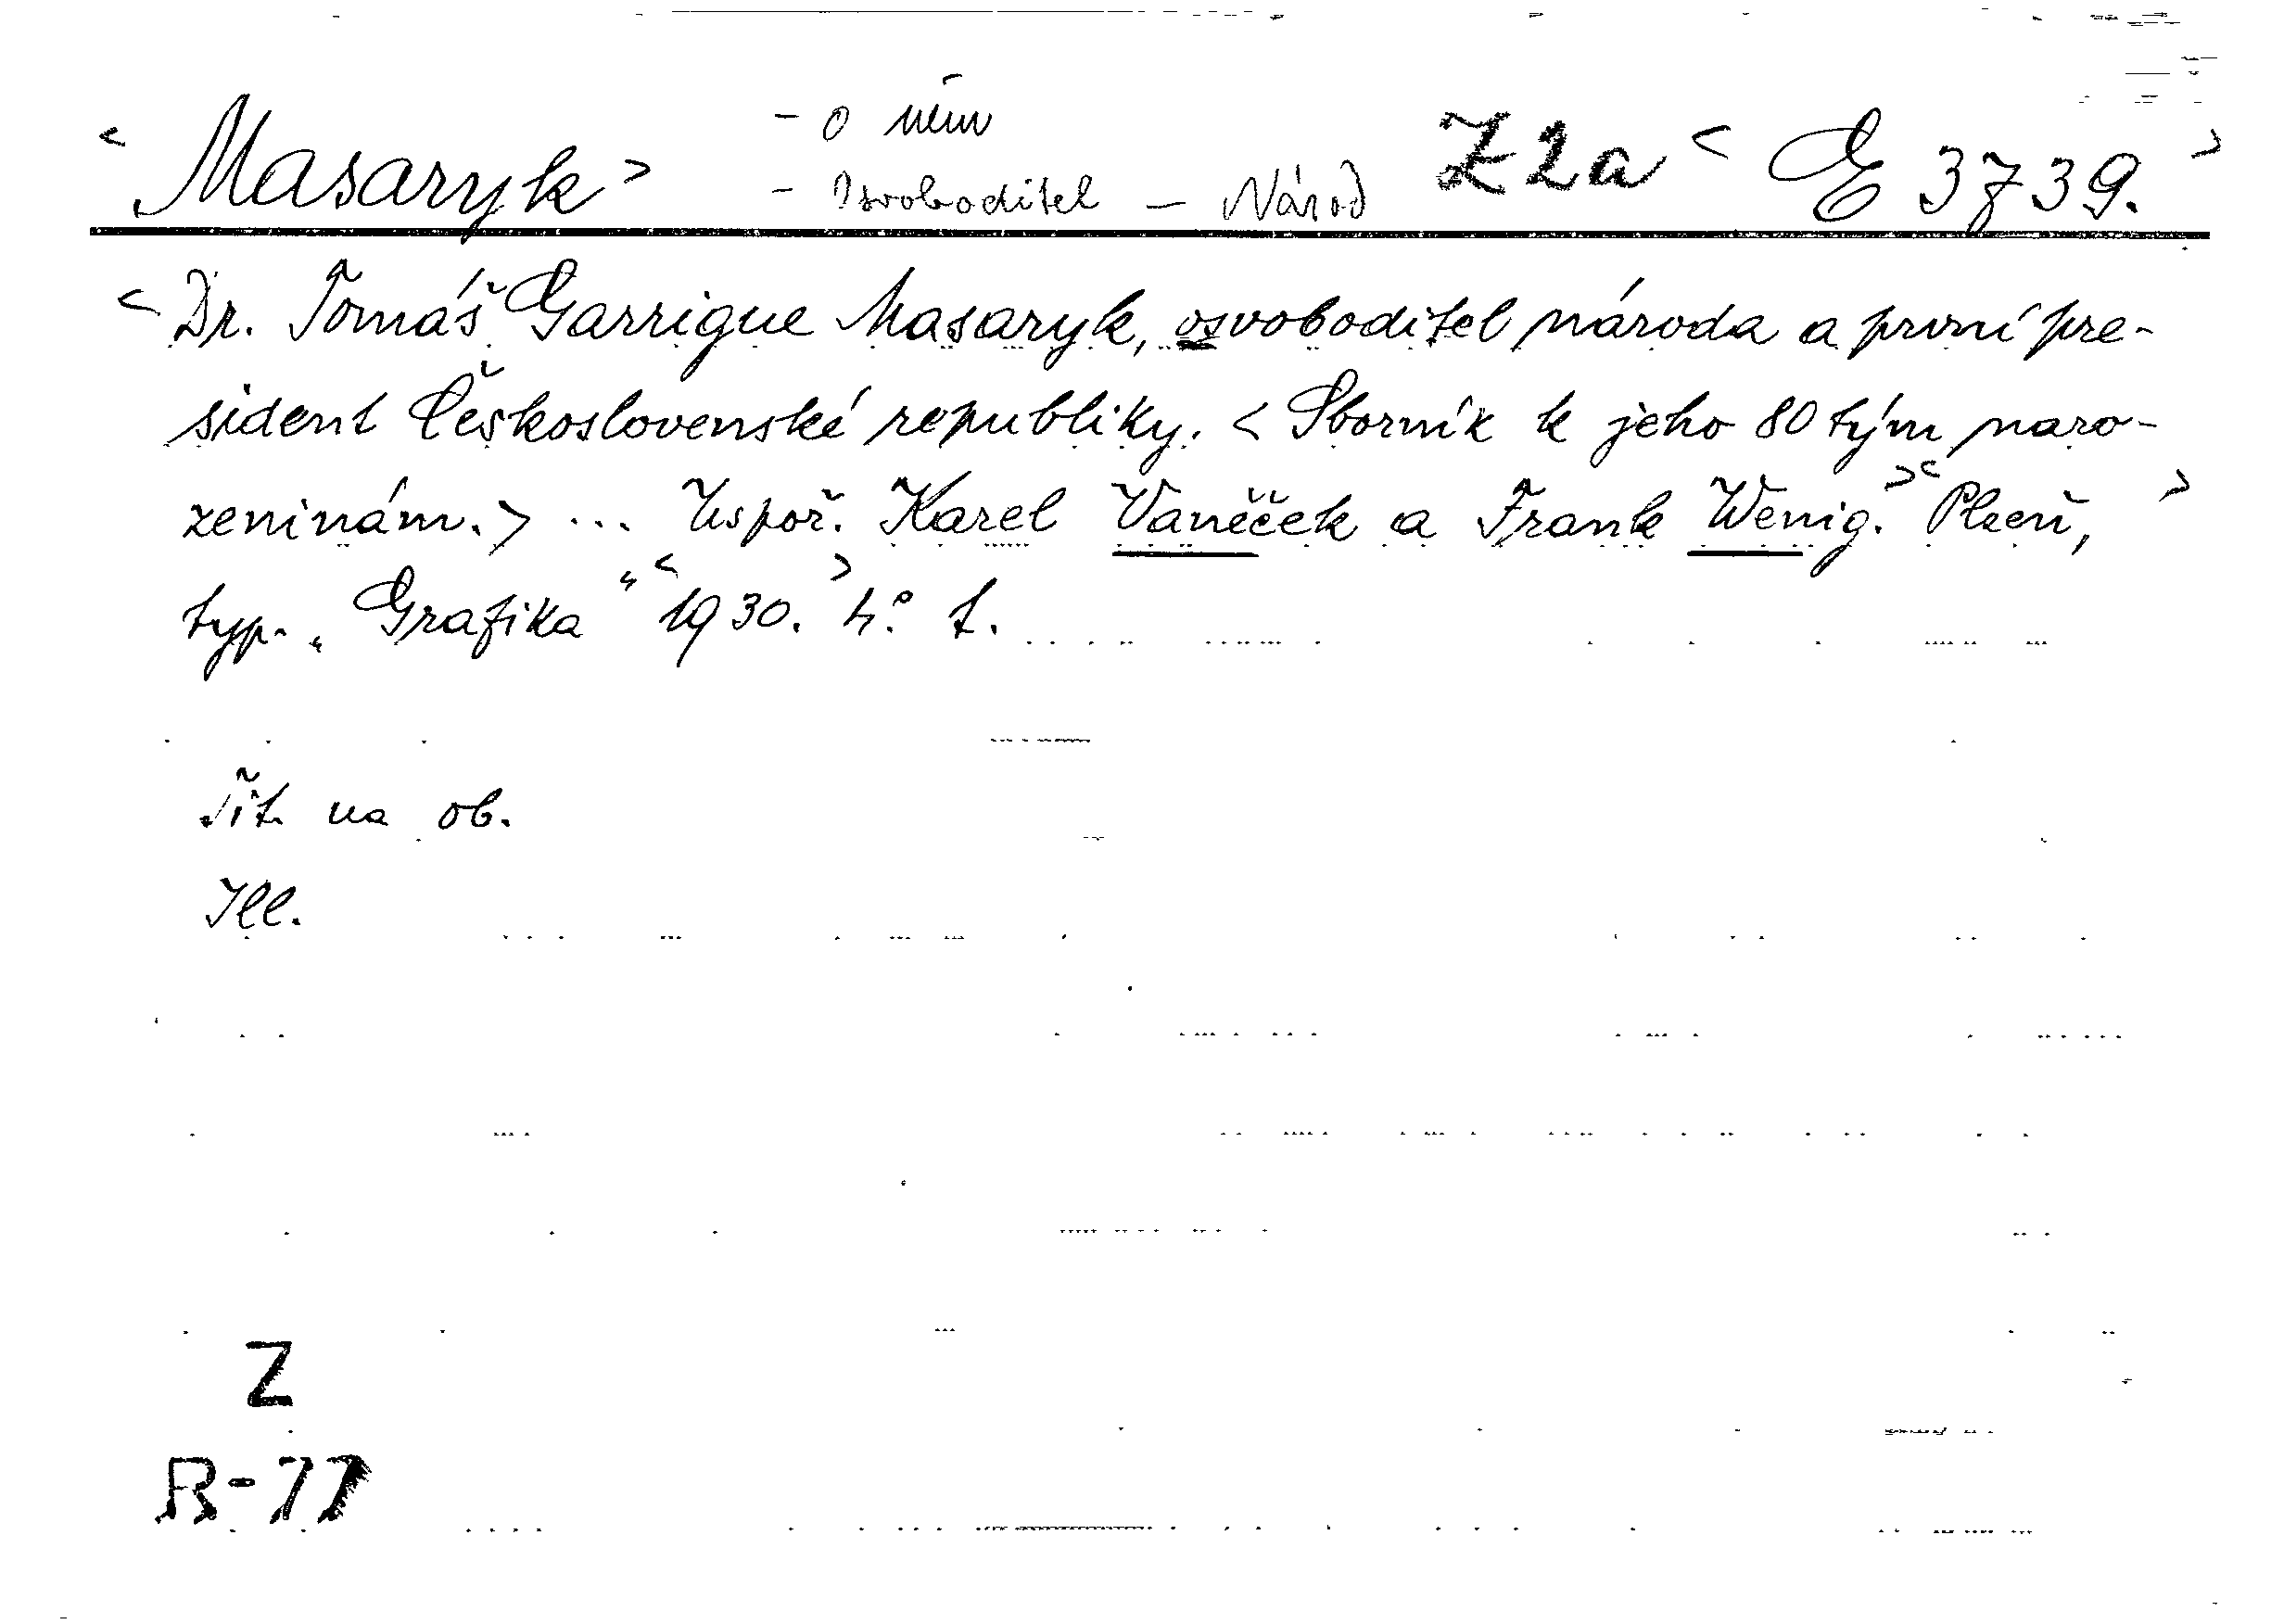 - o něm
<Masaryk> - Osvoboditel - Národ Z2a <E 3739.>
<Dr. Tomáš Garrigue Masaryk, osvoboditel národa a první pre-
sident Československé republiky. <Sborník k jeho 80tým naro-
zeninám.> ... Uspoř. Karel Vaněček a Frank Wenig.> <Plzeň,>
typ. „Grafika“ <1930.> 4°. t.
Tit. na ob.
Ill.
Z
R-77